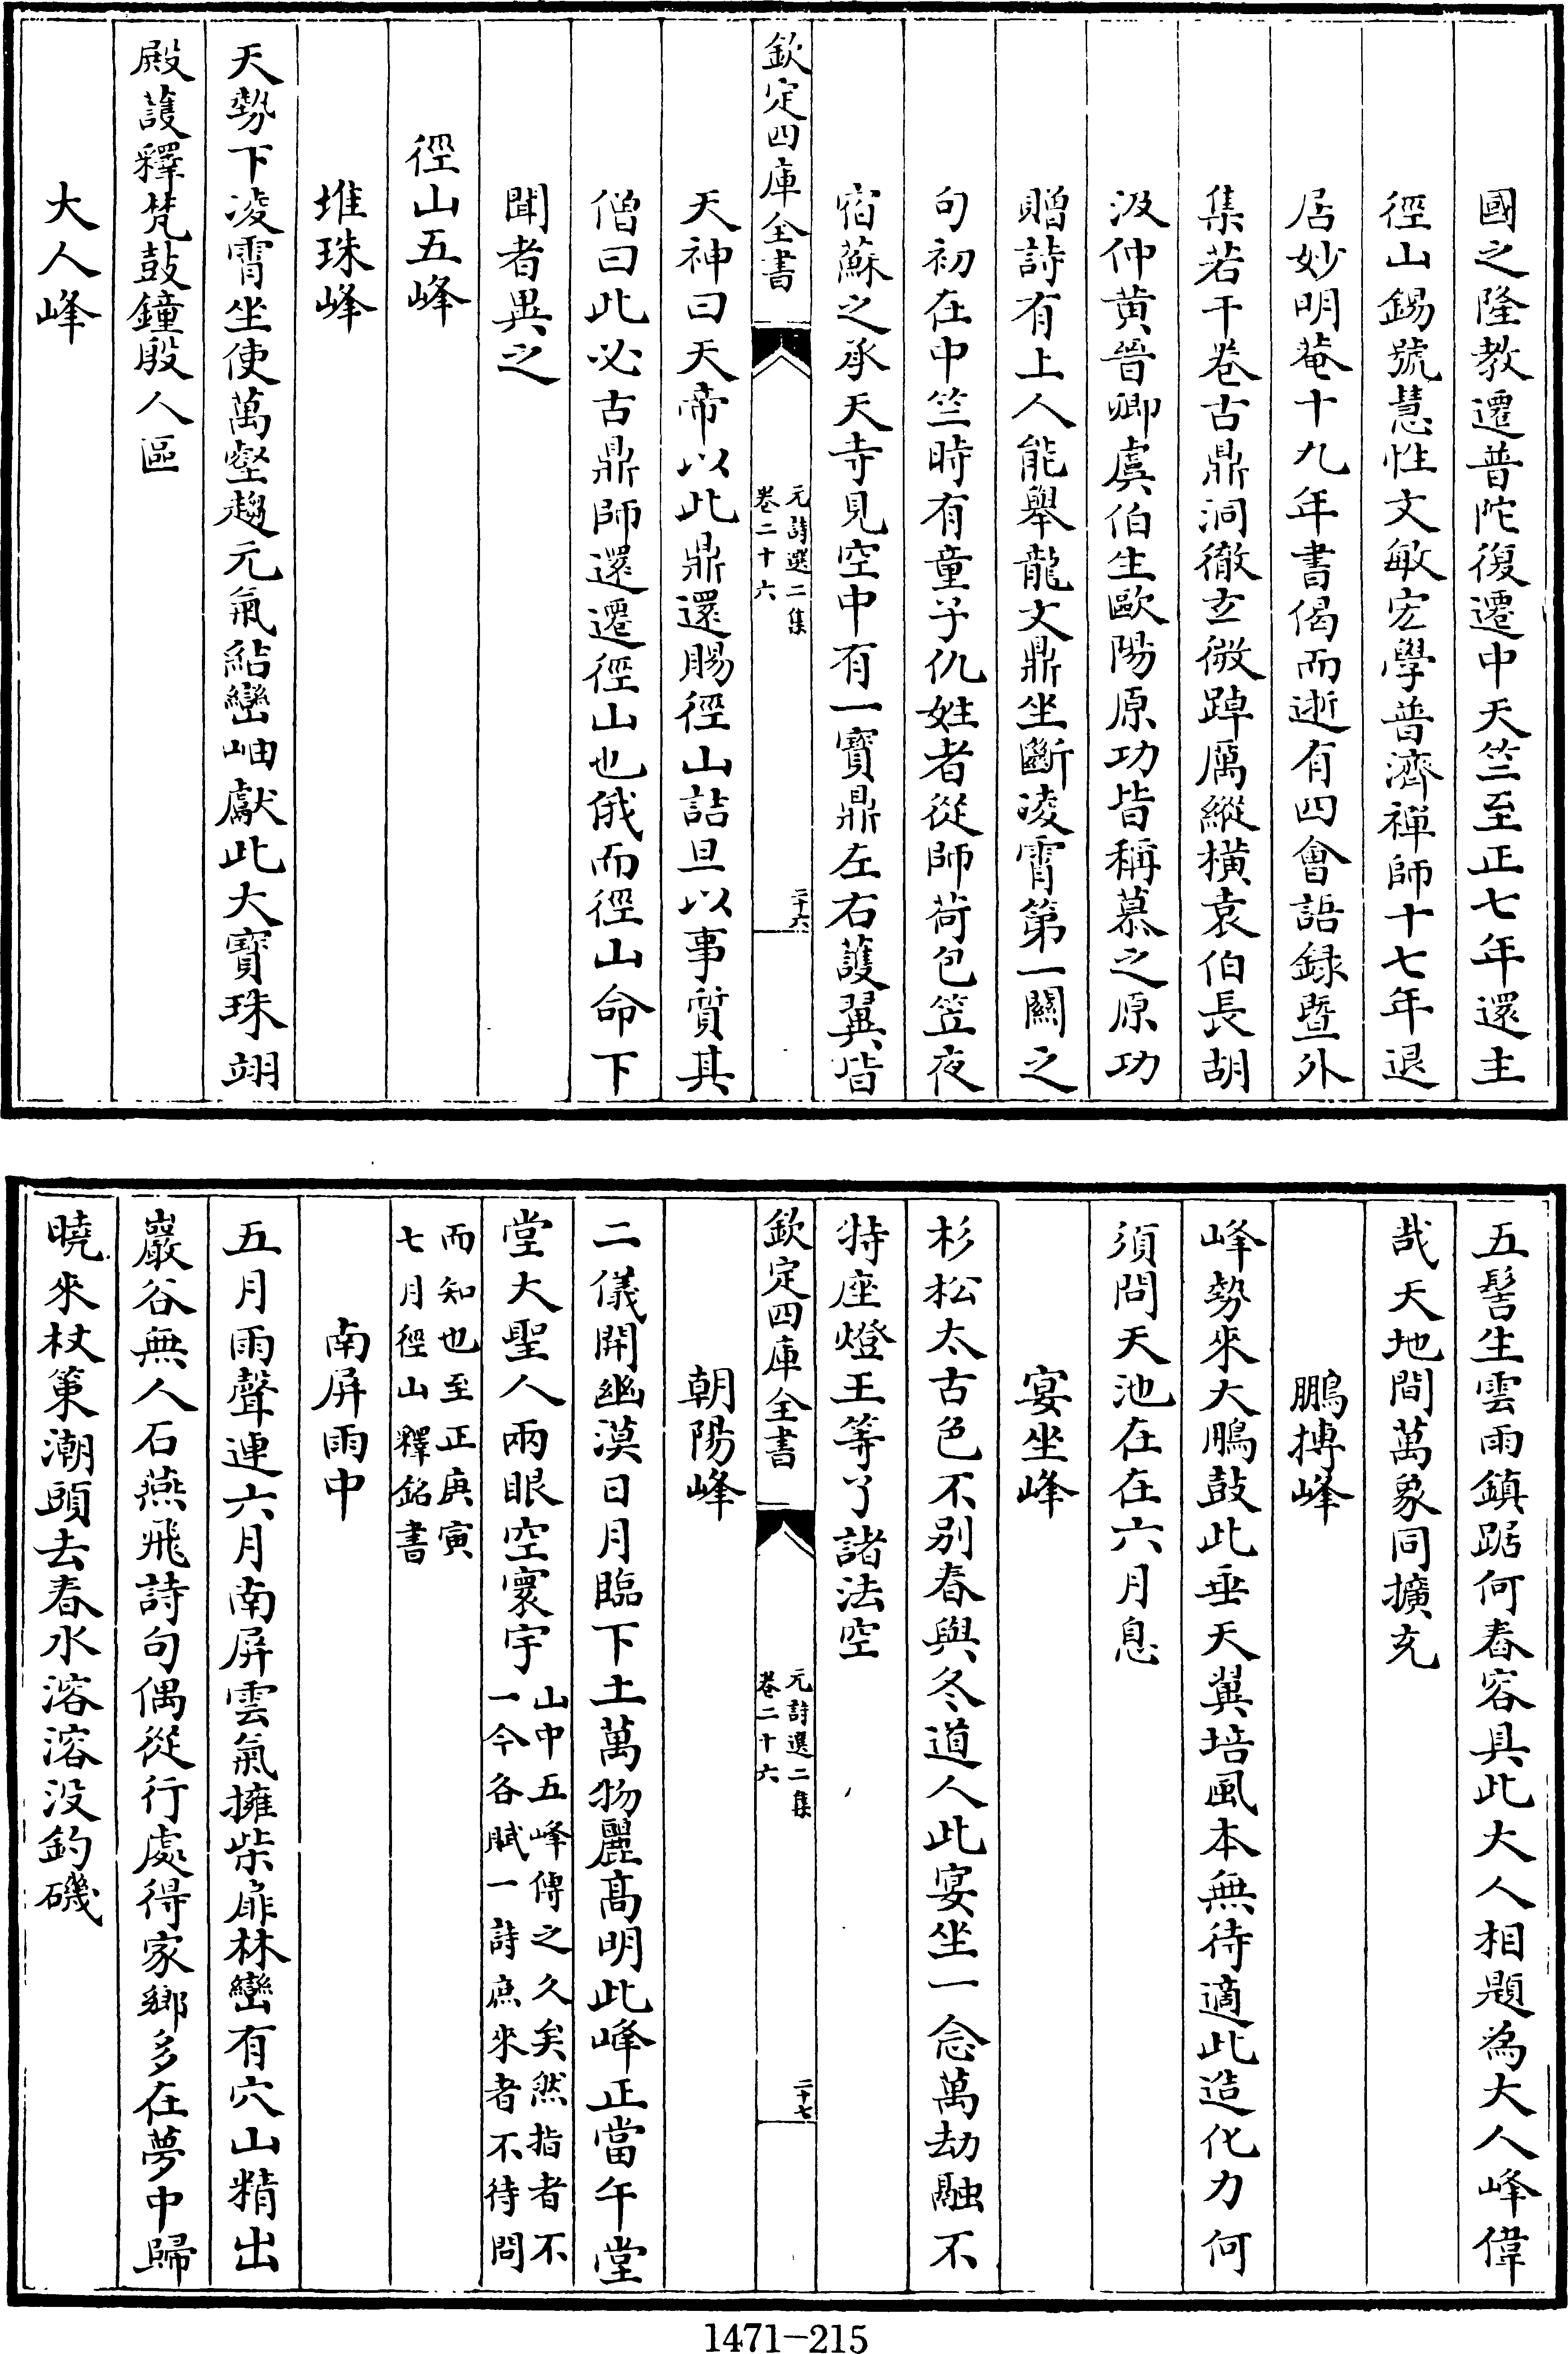 國之隆教遷普陀復遷中天竺至正七年還主
徑山錫號慧性文敏宏學普濟禪師十七年退
居妙明菴十九年書偈而逝有四會語録暨外
集若干卷古鼎洞徹玄微踔厲縱橫袁伯長胡
汲仲黄晉卿虞伯生歐陽原功皆稱慕之原功
贈詩有上人能舉龍文鼎坐斷凌霄第一關之
句初在中竺時有童子仇姓者從師荷包笠夜
宿蘇之承天寺見空中有一寳鼎左右護翼皆
欽定四庫全書
元詩選二集
卷二十六
二十六
天神曰天帝以此鼎還賜徑山詰旦以事質其
僧曰此必古鼎師還遷徑山也俄而徑山命下
聞者異之
徑山五峰
堆珠峰
天勢下凌霄坐使萬壑趨元氣結巒岫獻此大寳珠翊
殿護釋梵鼓鐘殷人區
大人峰
五髻生雲雨鎮踞何舂容具此大人相題為大人峰偉
哉天地間萬象同擴充
鵬搏峰
峰勢來大鵬鼓此垂天翼培風本無待適此造化力何
須問天池在在六月息
宴坐峰
杉松太古色不别春與冬道人此宴坐一念萬劫融不
特座燈王等了諸法空
欽定四庫全書
元詩選二集
卷二十六
二十七
朝陽峰
二儀開幽漠日月臨下土萬物麗髙明此峰正當午堂
堂大聖人兩眼空寰宇
山中五峰傳之久矣然指者不
一今各賦一詩庶來者不待問
而知也至正庚寅
七月徑山釋銘書
南屏雨中
五月雨聲連六月南屏雲氣擁柴扉林巒有穴山精出
巖谷無人石燕飛詩句偶從行處得家鄉多在夢中歸
曉來杖策潮頭去春水溶溶没釣磯
1471-215